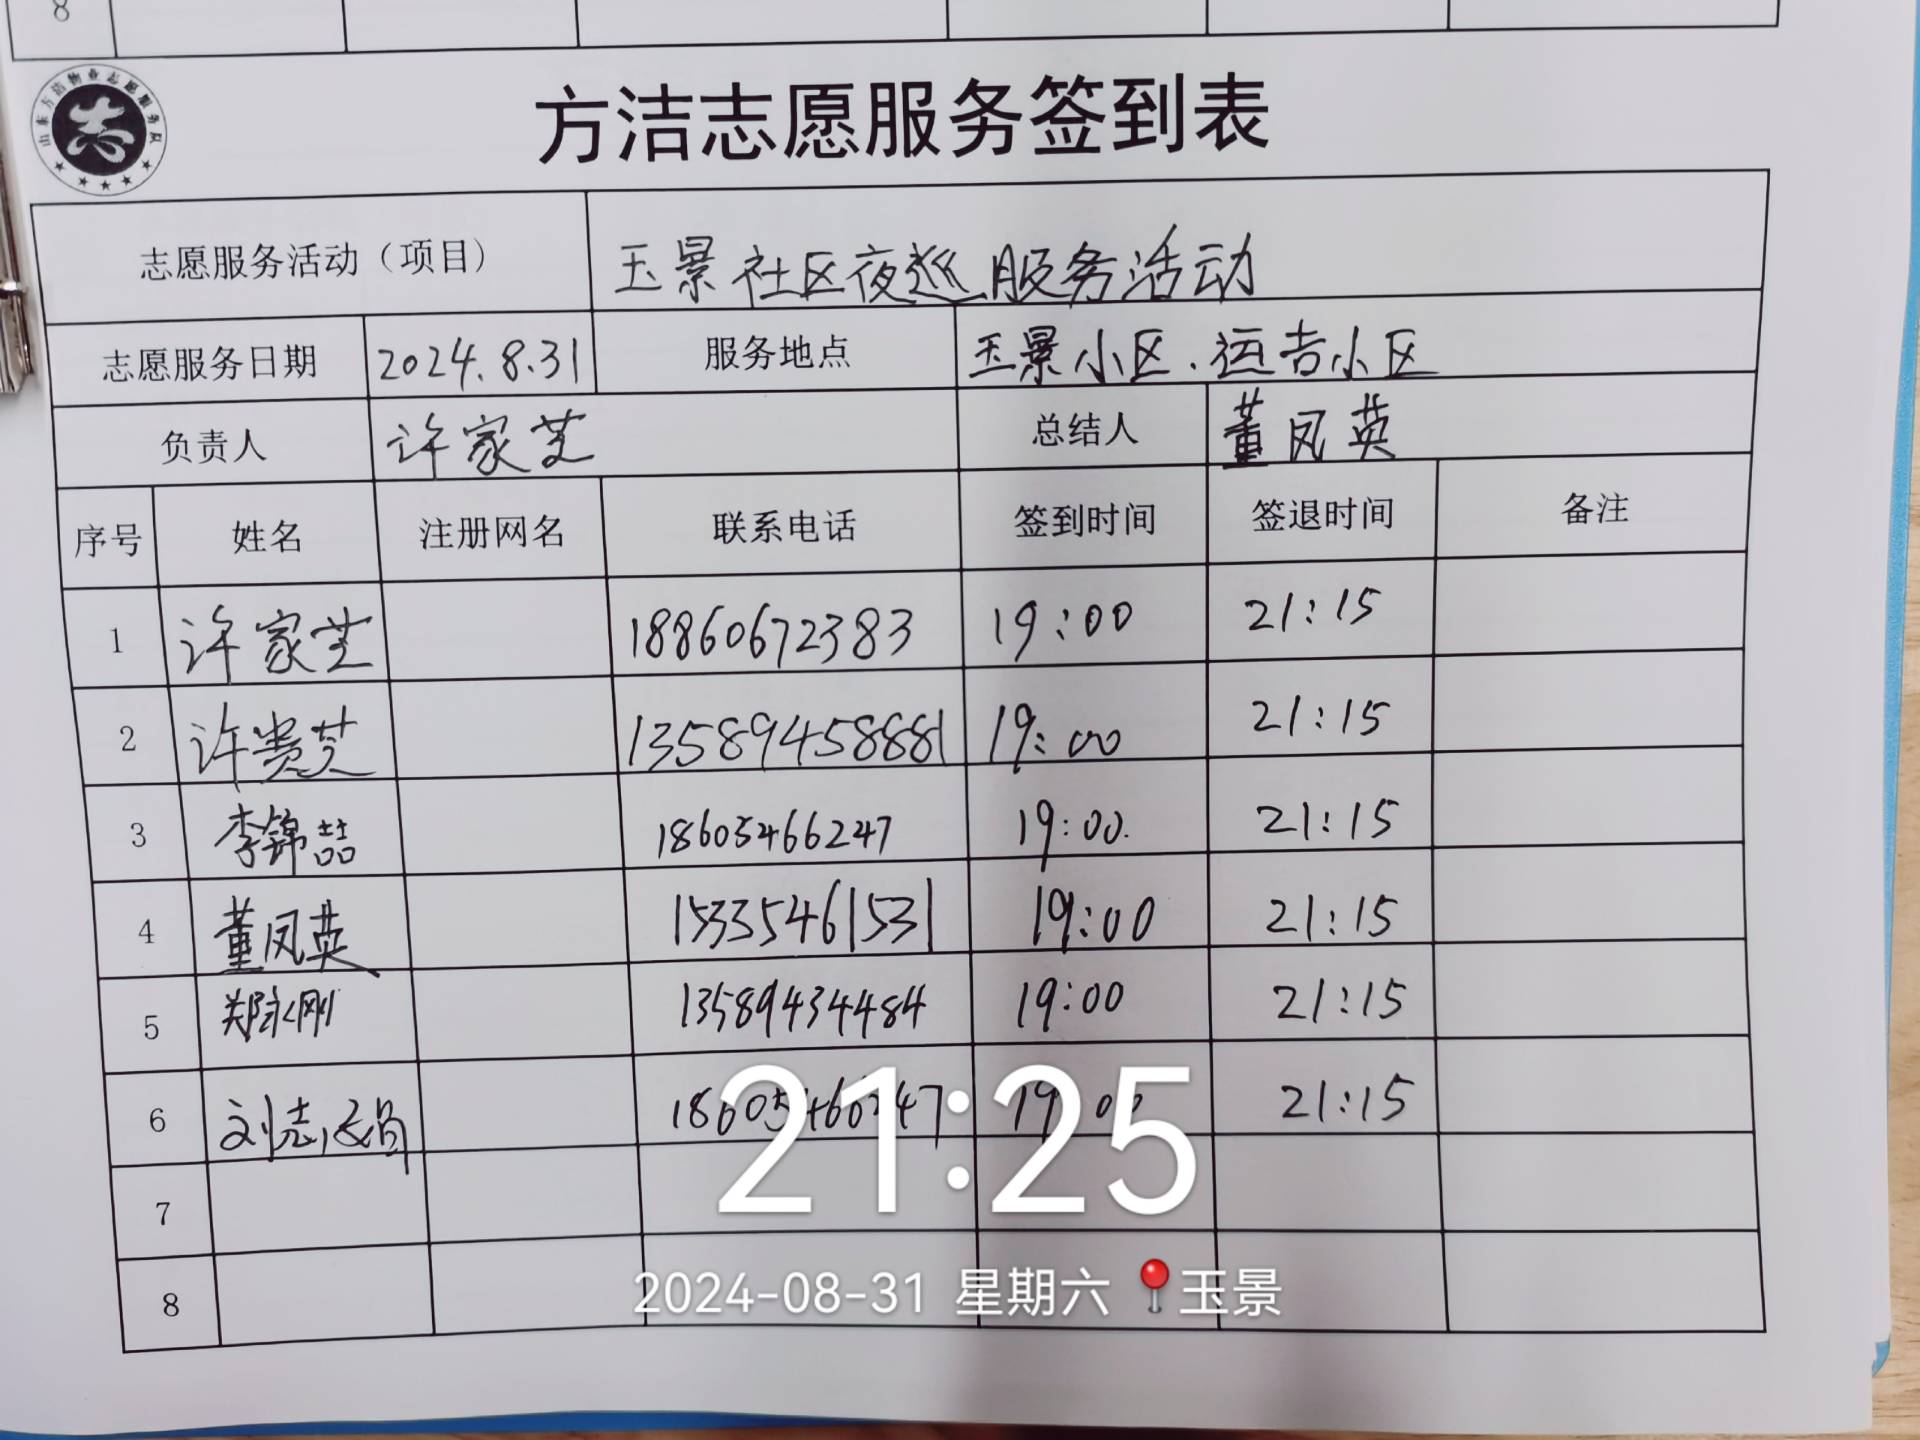 8
山东方洁物业志愿服务队
志
方洁志愿服务签到表
志愿服务活动（项目） 玉景社区夜巡服务活动
志愿服务日期 2024.8.31 服务地点 玉景小区.运吉小区
负责人 许家芝 总结人 董凤英
序号 姓名 注册网名 联系电话 签到时间 签退时间 备注
1 许家芝 18860672383 19:00 21:15
2 许贵芝 13589458881 19:00 21:15
3 李锦喆 18605466247 19:00. 21:15
4 董凤英 15335461531 19:00 21:15
5 郑永刚 13589434484 19:00 21:15
6 刘志 18605466247 19:00 21:15
7
8
21:25
2024-08-31 星期六 玉景